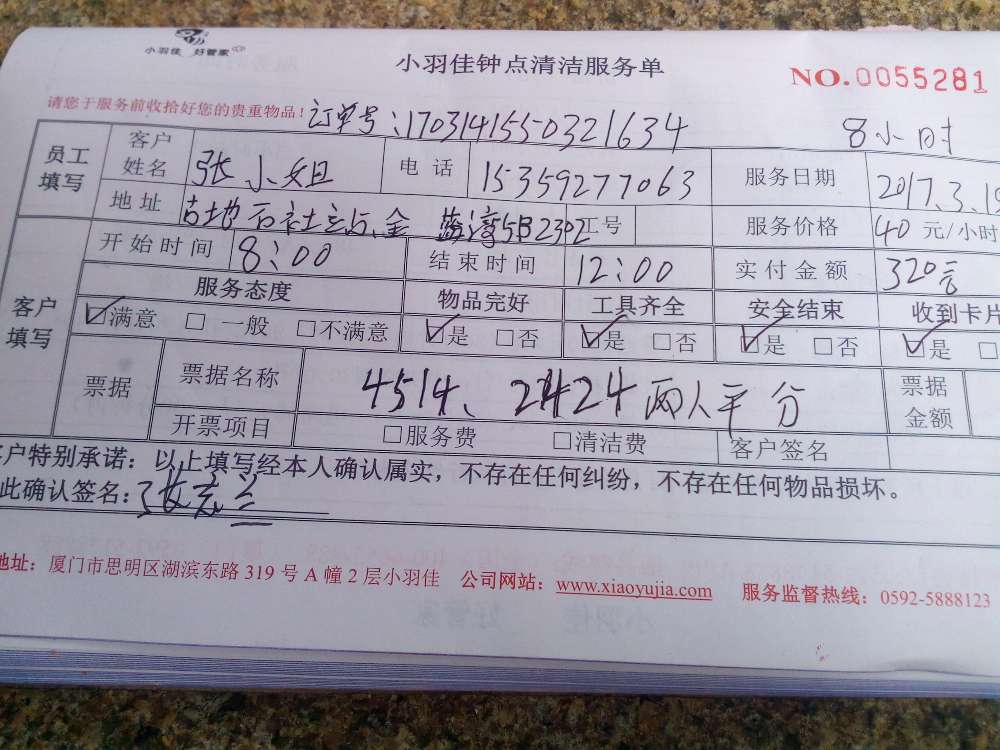 小羽佳 好管家
小羽佳钟点清洁服务单
NO.0055281
请您于服务前收拾好您的贵重物品!
订单号:1703141550321634 8小时
员工填写 客户姓名 张小姐 电话 15359277063 服务日期 2017.3.19
地址 古地石社 金 湾 2302 工号 服务价格 40元/小时
客户填写 开始时间 8:00 结束时间 12:00 实付金额 320元
服务态度 物品完好 工具齐全 安全结束 收到卡片
☑满意 □一般 □不满意 ☑是 □否 ☑是 □否 ☑是 □否 ☑是 □
票据 票据名称 4514、2424两人平分 票据金额
开票项目 □服务费 □清洁费 客户签名
客户特别承诺:以上填写经本人确认属实,不存在任何纠纷,不存在任何物品损坏。
此确认签名:
地址:厦门市思明区湖滨东路319号A幢2层小羽佳 公司网站:www.xiaoyujia.com 服务监督热线:0592-5888123